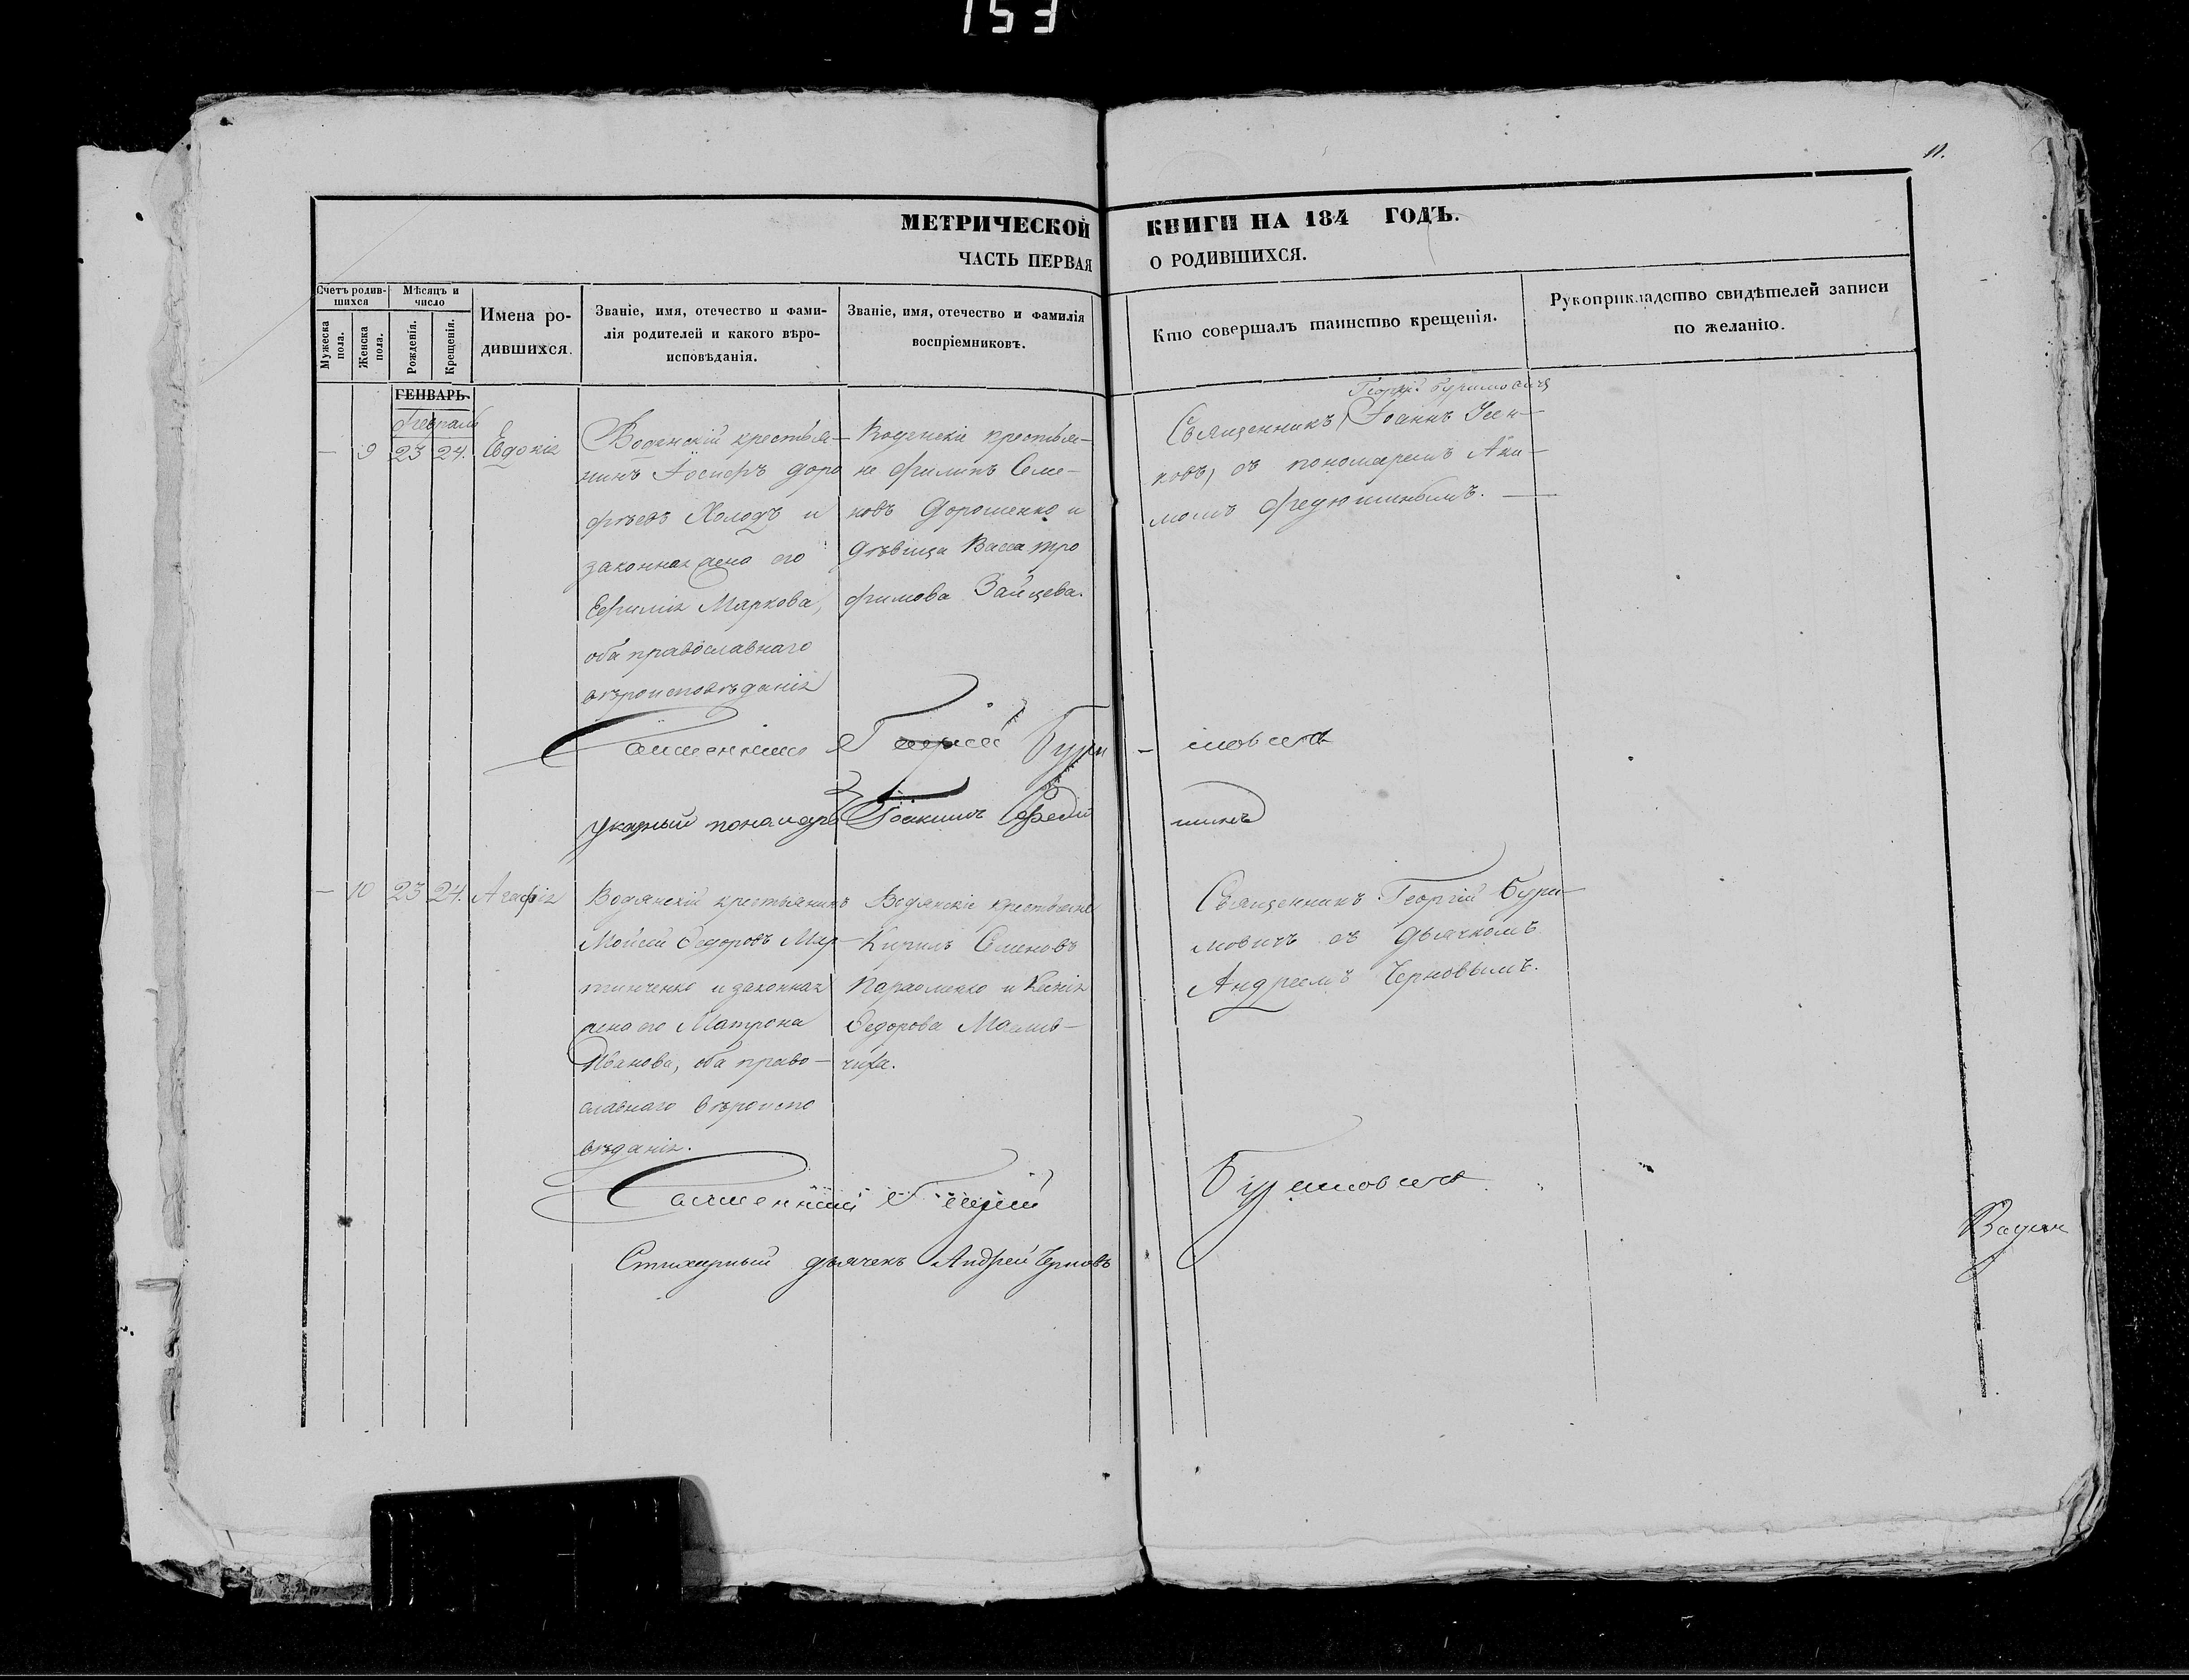 153
11.
МЕТРИЧЕСКОЙ КНИГИ НА 184 ГОДЪ.
ЧАСТЬ ПЕРВАЯ О РОДИВШИХСЯ.
Счетъ родив-
шихся
Мужеска пола.
Женска пола.
Мѣсяцъ и
число
Рожденія.
Крещенія.
Имена ро-
дившихся.
Званіе, имя, отечество и фами-
лія родителей и какого вѣро-
исповѣданія.
Званіе, имя, отечество и фамилія
воспріемниковъ.
Кто совершалъ таинство крещенія.
Рукоприкладство свидѣтелей записи
по желанію.
ГЕНВАРЬ.
Февраль
— 9 23 24. Евдокія
Водянскій крестья-
нинъ Іосифъ Доро
фѣевъ Холодъ и
законная жена его
Ефимія Маркова,
оба православнаго
вѣроисповѣданія
Водянскіе крестья-
не Филипъ Семе-
новъ Дорошенко и
дѣвица Васса Тро
фимова Зайцева.
Георгій Буримовичъ
Священникъ Іоаннъ
ковъ, съ пономаремъ Аки-
момъ Федюшинымъ.
Священникъ Георгій Бури - мовичъ
Указный пономарь Іоакимъ Федю шинъ
— 10 23 24. Агафія
Водянскій крестьянинъ
Мойсей Федоровъ Мар-
тинченко и законная
жена его Матрона
Иванова, оба право-
славнаго вѣроиспо
вѣданія.
Водянскіе крестьяне
Кирилъ Семеновъ
Пархоменко и Ксенія
Федорова
чиха.
Священникъ Георгій Бури-
мовичъ съ дьячкомъ
Андреемъ Черновымъ.
Священникъ Георгій Буримовичъ
Стихарный дьячекъ Андрей Черновъ